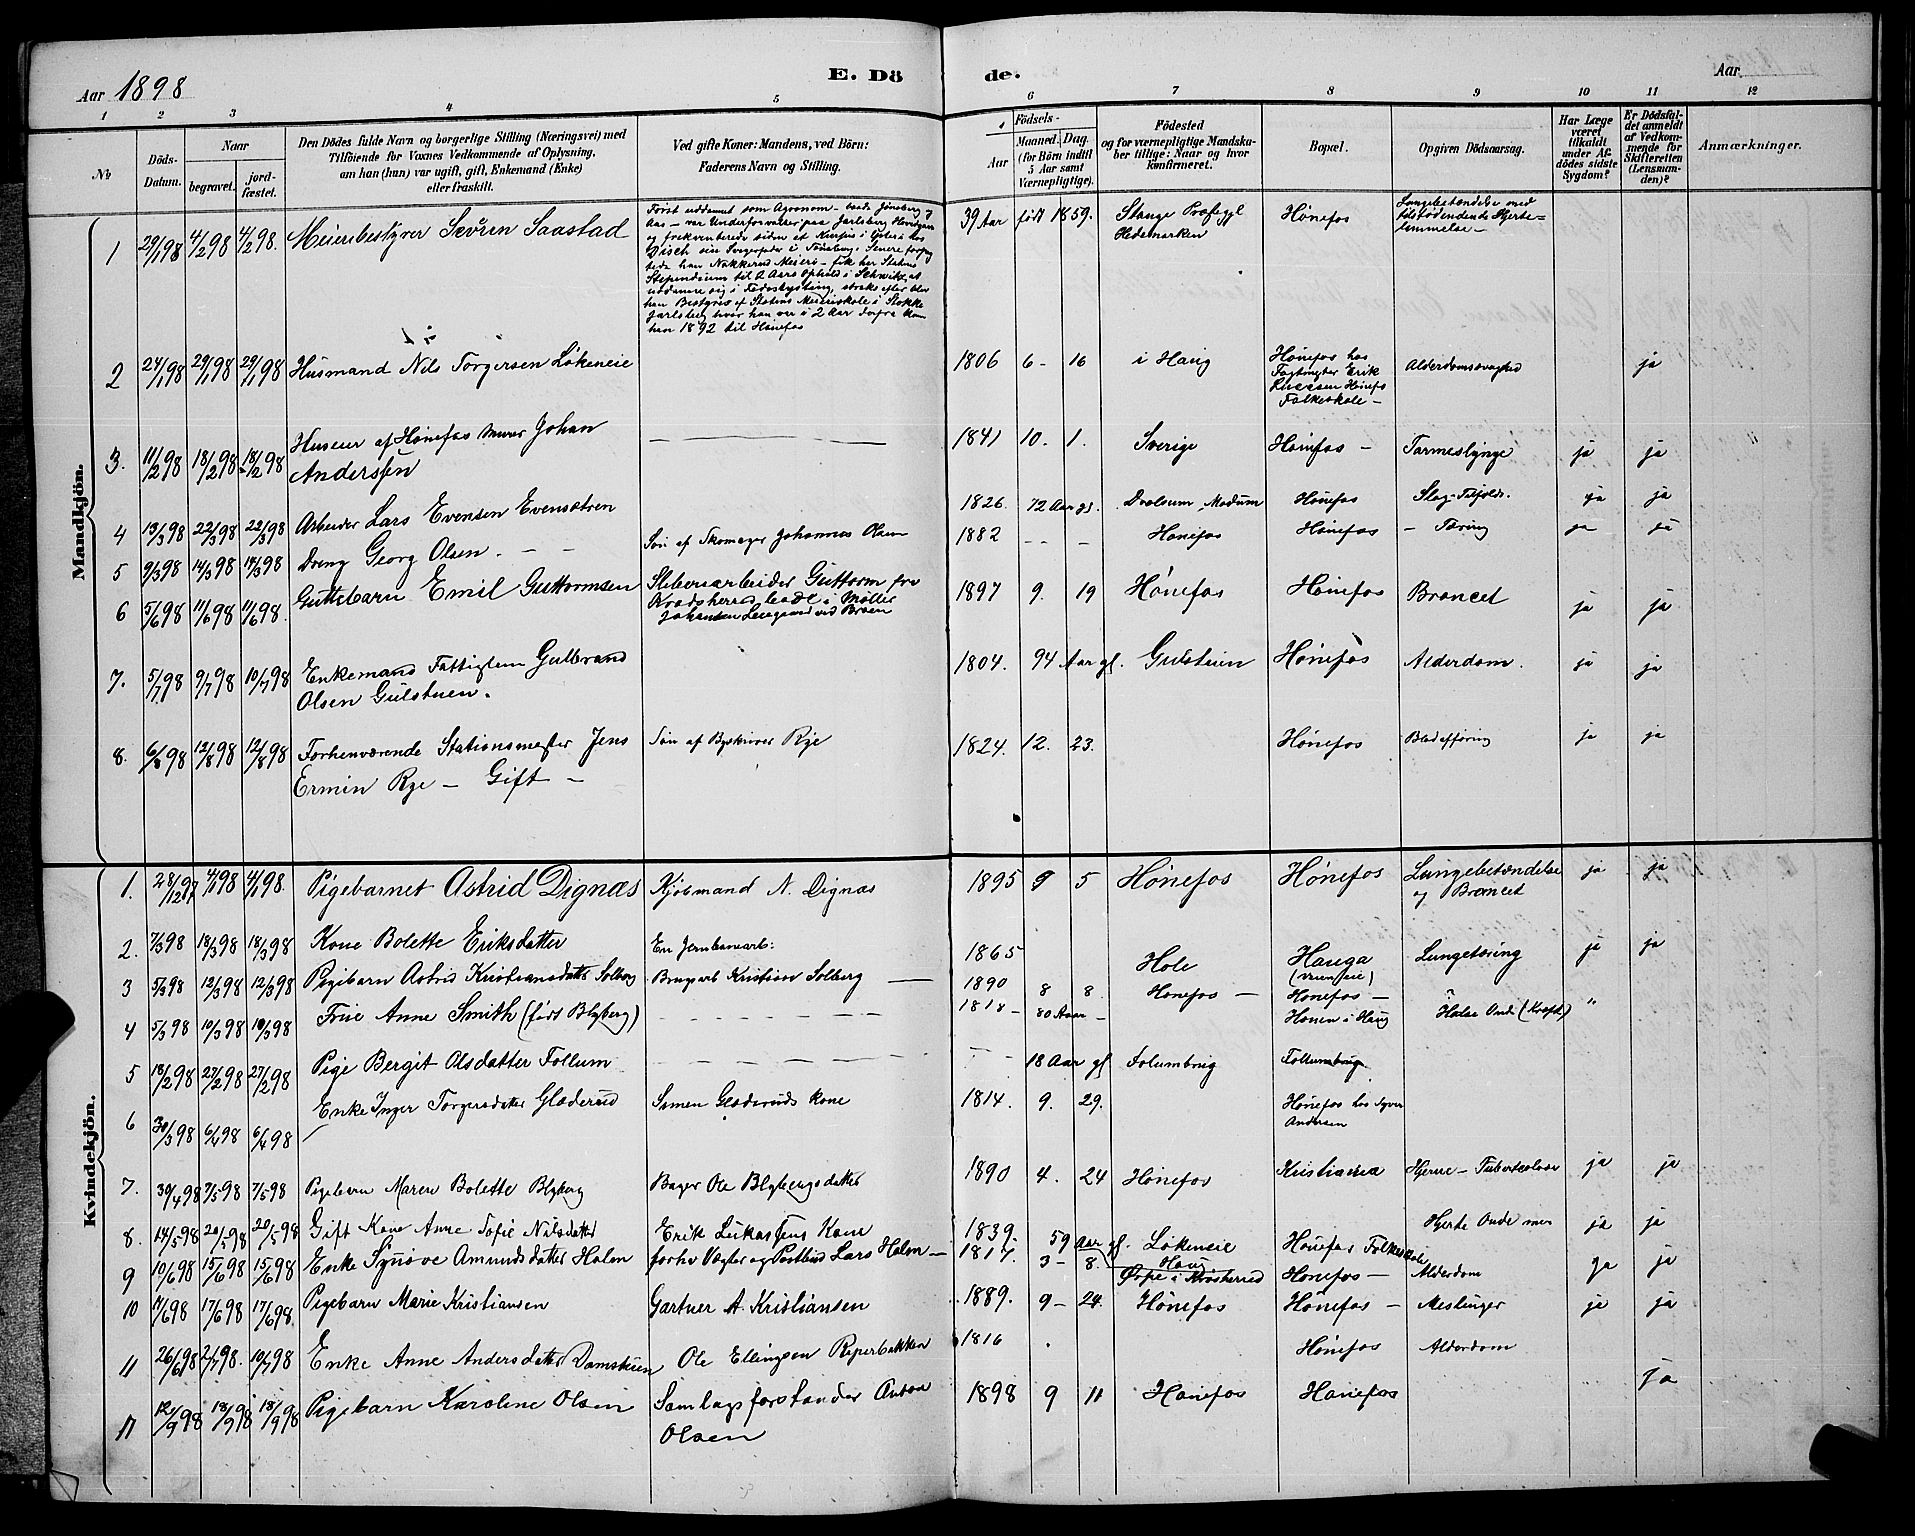 Aar 1898 E. Dö de. Aar
1 2 3 4 5 6 7 8 9 10 11 12
No
Döds-Datum.
Naar
begravet.
jord-fæstet.
Den Dödes fulde Navn og borgerlige Stilling (Næringsvei) med
Tilföiende for Voxnes Vedkommende af Oplysning,
om han (hun) var ugift, gift, Enkemand (Enke)
eller fraskilt.
Ved gifte Koner: Mandens, ved Börn:
Faderens Navn og Stilling.
Födsels-
Aar
Maaned. Dag.
(for Börn indtil
5 Aar samt
Værnepligtige).
Födested
og for værnepligtige Mandska-
ber tillige: Naar og hvor
konfirmeret.
Bopæl.
Opgiven Dödsaarsag.
Har Læge
været
tilkaldt
under Af-
dödes sidste
Sygdom?
Er Dödsfal-
det anmeldt
af Vedkom-
mende for
Skifteretten
(Lensman-
den)?
Anmærkninger.
Mandkjön.
1 29/1 98 4/2 98 4/2 98. Meieribestyrer Sevrin Saastad
Först uddannet som Agronom - baade Jönsberg &
Aas - var Underforvalter paa Jarlsberg Hovedgaard
og frekventerede siden et Kursus i hos
Disch sin Svigerfader i Tönsberg. Senere
han Nakkerud Meieri - fik her Statens
Stipendium til 2 Aars Ophold i Schweitz at
uddanne sig i straks efter blev
han Bestyrer af Statens Meieriskole i Stokke
Jarlsberg hvor han var i 2 Aar derfra kom
han 1892 til Hönefos
39 Aar född 1859. Stange Præstegjl Hedemarken Hönefos Lungebetændelse med tilstödendende Hjerte= lammelse -
2 24/1 98 29/1 98 29/1 98 Husmand Nils Torgersen Lökeneie 1806 6 - 16 i Haug Hönefos hos Erik Hönefos Folkeskole - Alderdomssvaghed ja
3. 11/2 98 18/2 98 18/2 98 Huseier af Hönefos Murer Johan
Andersen 1841 10. 1. Sverige Hönefos - Tarmeslynge ja ja
4 13/3 98 22/3 98 22/3 98 Arbeider Lars Evensen Evensætren 1826. 72 Aar gl. Modum Hönefos Slag- ja ja
5 9/3 98 14/3 98 14/3 98 Dreng Georg Olsen. - - Sön af Skomager Johannes Olsen 1882 - - - Hönefos Hönefos - Tæring ja ja
6 5/6 98 11/6 98 11/6 98. Guttebarn Emil Guttormsen Sliberiarbeider Guttorm fra
Krodsherred boede i Möller
Johansen ved Broen
1897 9. 19 Hönefos Hönefos Broncet ja ja
7. 5/7 98 9/7 98 10/7 98 Enkemand Fattiglem Gulbrand
Olsen Gulstuen. 1804. 94 Aar gl. Gulstuen Hönefos Alderdom. ja ja
8. 6/8 98 12/8 98 12/8 98 Forhenværende Stationsmester Jens
Ermin Rye - Gift - Sön af Byskriver Rye 1824. 12. 23. Hönefos ja ja
Kvindekjön.
1. 28/12 97 4/1 98 4/1 98. Pigebarnet Astrid Dignæs Kjöbmand N. Dignæs 1895 9 5 Hönefos Hönefos Lungebetændelse
og Broncet ja ja
2. 7/3 98 18/3 98 18/3 98 Kone Bolette Eriksdatter En Jernbanearb: 1865 Hole Hauga Lungetæring ja ja
3 5/3 98 12/3 98 12/3 98 Pigebarn Astrid Kristiansdatter Solberg Brugsarb Kristian Solberg 1890 8 8. Hönefos - Hönefos -
4 5/3 98 10/3 98 10/3 98 Frue Anne Smith (födt Blyberg) 1818 - 80 Aar - Hönen i Haug Halse Onde (Kræft) "
5 18/2 98 27/2 98 27/2 98 Pige Bergit Olsdatter Follum 18 Aar gl Folumbrug Follumbrug
6 30/3 98 6/4 98 6/4 98 Enke Inger Torgersdatter Gloderud Simen Gloderuds kone 1814. 9. 29. Hönefos hos Syver
Andersen
7. 30/4 98 7/5 98 7/5 98 Pigebarn Maren Bolette Blyberg Bager Ole Blybergs datter 1890 4. 24 Hönefos Kristiania Hjerne - Tuberkulose ja ja
8. 14/5 98 20/5 98 20/5 98 Gift Kone Anne Sofie Nilsdatter Erik Lukassens Kone 1839. 59 Aar gl. Lökeneie
Haug Hönefos Folkeskole Hjerte Onde ja ja
9 10/6 98 15/6 98 15/6 98 Enke Synöve Amundsdatter Holm forhv Vægter og Postbud Lars Holm - 1817. 3 - 8 i Krödsherred Hönefos - Alderdom ja ja
10 11/6 98 17/6 98 17/6 98. Pigebarn Marie Kristiansen Gartner A. Kristiansen 1889. 9 - 24. Hönefos Hönefos - Meslinger ja ja
11 26/6 98 2/7 98. 10/7 98 Enke Anne Andersdatter Damstuen Ole Ellingsen Reperbakken 1816 Hönefos Alderdom
11 12/9 98 18/9 98 18/9 98 Pigebarn Karoline Olsen Samlagsforstander Anton
Olsen 1898 9 11 Hönefos Hönefos ja